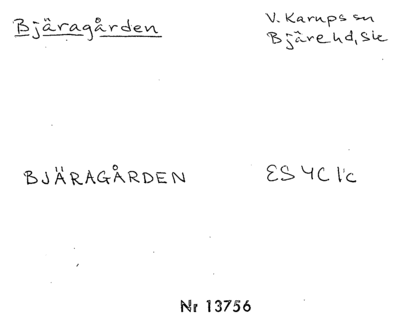 Bjäragården
V. Karups sn
Bjäre hd, Sk
BJÄRAGÅRDEN
ES 4C 1c
Nr 13756